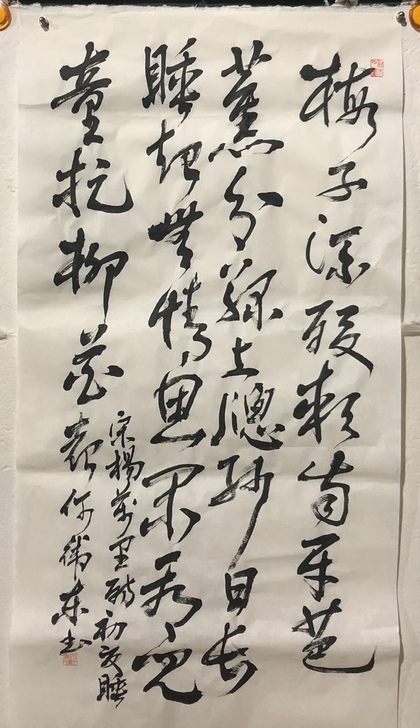 梅子流酸軟齒牙芭
蕉分綠上牕紗日長
睡起無情思閒看兒
童捉柳花
宋楊萬里詩初夏睡
起 東书